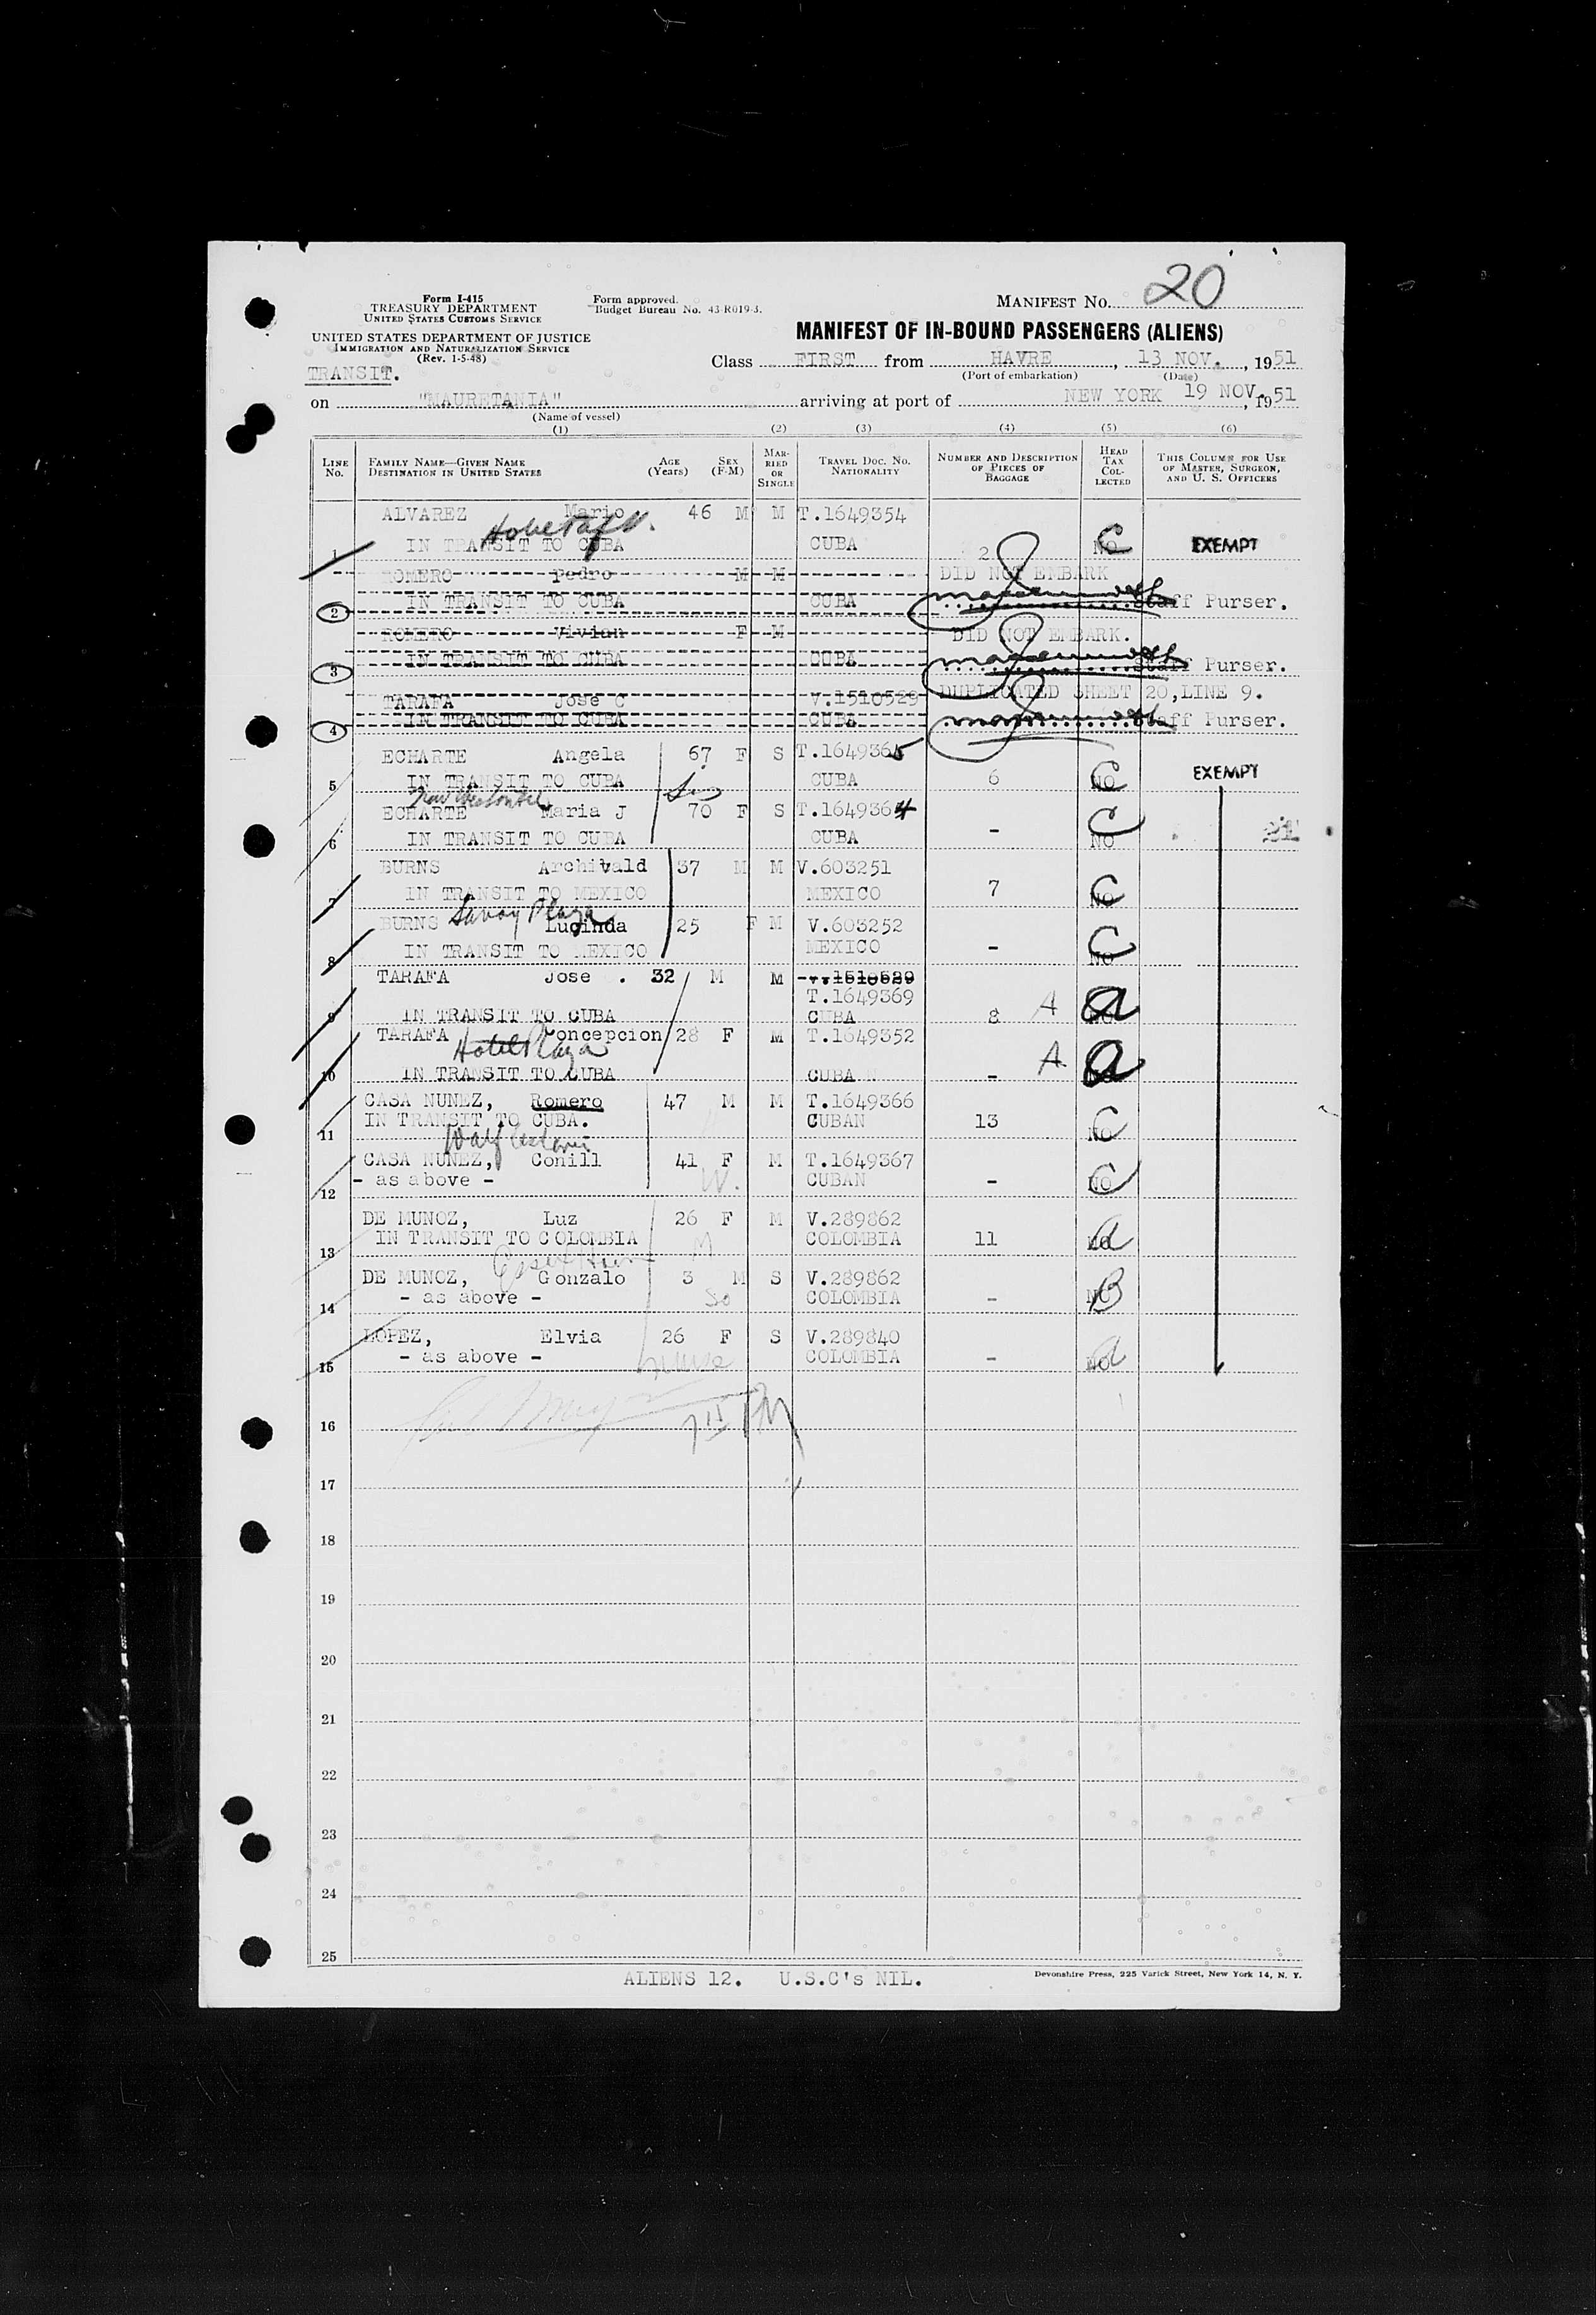 Form I-415
TREASURY DEPARTMENT
UNITED STATES CUSTOMS SERVICE
UNITED STATES DEPARTMENT OF JUSTICE
IMMIGRATION AND NATURALIZATION SERVICE
(Rev. 1-5-48)
Form approved.
Budget Bureau No. 43-R019-3.
MANIFEST No. 20
MANIFEST OF IN-BOUND PASSENGERS (ALIENS)
TRANSIT.
Class FIRST from HAVRE, 13 NOV., 1951
(Port of embarkation) (Date)
on "MAURETANIA" arriving at port of NEW YORK 19 NOV., 1951
(Name of vessel)
(1) (2) (3) (4) (5) (6)
LINE No. FAMILY NAME—GIVEN NAME DESTINATION IN UNITED STATES AGE (Years) SEX (F-M) MARRIED OR SINGLE TRAVEL DOC. No. NATIONALITY NUMBER AND DESCRIPTION OF PIECES OF BAGGAGE HEAD TAX COLLECTED THIS COLUMN FOR USE OF MASTER, SURGEON, AND U. S. OFFICERS
ALVAREZ Mario 46 M M T.1649354
1 IN TRANSIT TO CUBA CUBA 2 NO C EXEMPT
ROMERO Pedro M M DID NOT EMBARK
2 IN TRANSIT TO CUBA CUBA Staff Purser.
ROMERO Vivian F M DID NOT EMBARK.
3 IN TRANSIT TO CUBA CUBA Staff Purser.
TARAFA Jose C V.1510529 DUPLICATED SHEET 20,LINE 9.
4 IN TRANSIT TO CUBA CUBA Staff Purser.
ECHARTE Angela 67 F S T.1649365
5 IN TRANSIT TO CUBA Sis CUBA 6 NO C EXEMPT
ECHARTE Maria J 70 F S T.1649364
6 IN TRANSIT TO CUBA CUBA - NO C
BURNS Archibald 37 M M V.603251
7 IN TRANSIT TO MEXICO MEXICO 7 NO C
Savoy Plaza
BURNS Lucinda 25 F M V.603252
8 IN TRANSIT TO MEXICO MEXICO - NO C
TARAFA Jose . 32 M M V.1510529
T.1649369
9 IN TRANSIT TO CUBA CUBA 8 A NO a
TARAFA Concepcion 28 F M T.1649352
Hotel Plaza
10 IN TRANSIT TO CUBA CUBA - A NO a
CASA NUNEZ, Romero 47 M M T.1649366
11 IN TRANSIT TO CUBA. CUBAN 13 NO C
CASA NUNEZ, Conill 41 F M T.1649367
12 - as above - W. CUBAN - NO C
DE MUNOZ, Luz 26 F M V.289862
13 IN TRANSIT TO COLOMBIA M COLOMBIA 11 NO a
DE MUNOZ, Gonzalo 3 M S V.289862
14 - as above - So COLOMBIA - NO B
LOPEZ, Elvia 26 F S V.289840
15 - as above - nurse COLOMBIA - NO a
16
17
18
19
20
21
22
23
24
25
ALIENS 12. U.S.C's NIL.
Devonshire Press, 225 Varick Street, New York 14, N. Y.